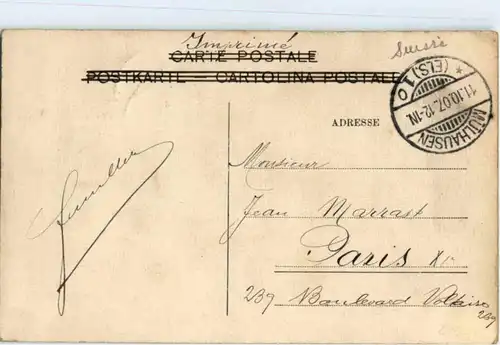 Imprimé
Suisse
CARTE POSTALE
POSTKARTE — CARTOLINA POSTALE
MÜLHAUSEN
11.10.07.12-1N.
* (ELS.) 1 o
ADRESSE
Monsieur
Jean Marrast
Paris XI
239 Boulevard Voltaire
239